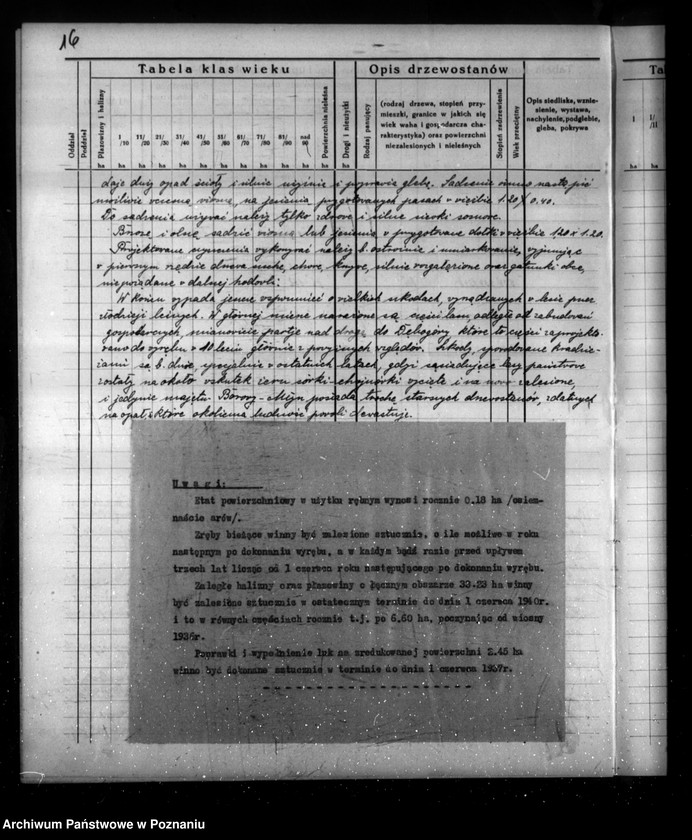 16
Tabela klas wieku
Opis drzewostanów
Ta
Oddział
Poddział
Płazowiny i halizny
1/10
11/20
21/30
31/40
41/50
51/60
61/70
71/80
81/90
nad 90
Powierzchnia nieleśna
Drogi i nieużytki
Rodzaj panujący
(rodzaj drzewa, stopień przymieszki, granice w jakich się
wiek waha i gospodarcza charakterystyka) oraz powierzchni
niezalesionych i nieleśnych
Stopień zadrzewienia
Wiek przeciętny
Opis siedliska, wzniesienie, wystawa,
nachylenie, podglebie,
gleba, pokrywa
ha ha ha ha ha ha ha ha ha ha ha ha ha
daje duży opad ścioły i silnie użyźnia i poprawia glebę. Sadzenie winno nastąpić
możliwie wczesną wiosną, na jesienią przygotowanych pasach w więźbie 1.20 X 0.40.
Do sadzenia używać należy tylko zdrowe i silne siewki sosnowe.
Brzozę i olszę sadzić wiosną lub jesienią w przygotowane dołki w więźbie 1.20 x 1.20.
Projektowane czyszczenia wykonywać należy b. ostrożnie i umiarkowanie, wyjmując
w pierwszym rzędzie drzewa suche, chore, krzywe, silnie rozgałęzione oraz gatunki obce,
niepożądane w dalszej hodowli.
W końcu wypada jeszcze wspomnieć o wielkich szkodach, wyrządzanych w lesie przez
złodzieji leśnych. W głównej mierze narażone są części lasu, odległe od zabudowań
gospodarczych, mianowicie partje nad drogą do Dębogóry które to części zaprojektowano do wyrębu w 10 leciu głównie z powyższych względów. Szkody, spowodowane kradzieżami są b. duże, specjalnie w ostatnich latach, gdyż sąsiadujące lasy państwowe
zostały na około wskutek żeru sówki-chojnówki wycięte i na nowo zalesione,
i jedynie majętn. Borowy-Młyn posiada trochę starszych drzewostanów, zdatnych
na opał, które okoliczna ludność powoli dewastuje.
Uwagi:
Etat powierzchniowy w użytku rębnym wynosi rocznie 0.18 ha /osiem-
naście arów/.
Zręby bieżące winny być zalesione sztucznie, o ile możliwe w roku
następnym po dokonaniu wyrębu, a w każdym bądź razie przed upływem
trzech lat licząc od 1 czerwca roku następującego po dokonaniu wyrębu.
Zaległe halizny oraz płazowiny o łącznym obszarze 33.23 ha winny
być zalesione sztucznie w ostatecznym terminie do dnia 1 czerwca 1940r.
i to w równych częściach rocznie t.j. po 6.60 ha, poczynając od wiosny
1936r.
Poprawki i wypełnienie luk na zredukowanej powierzchni 2.45 ha
winno być dokonane sztucznie w terminie do dnia 1 czerwca 1937r.
Archiwum Państwowe w Poznaniu